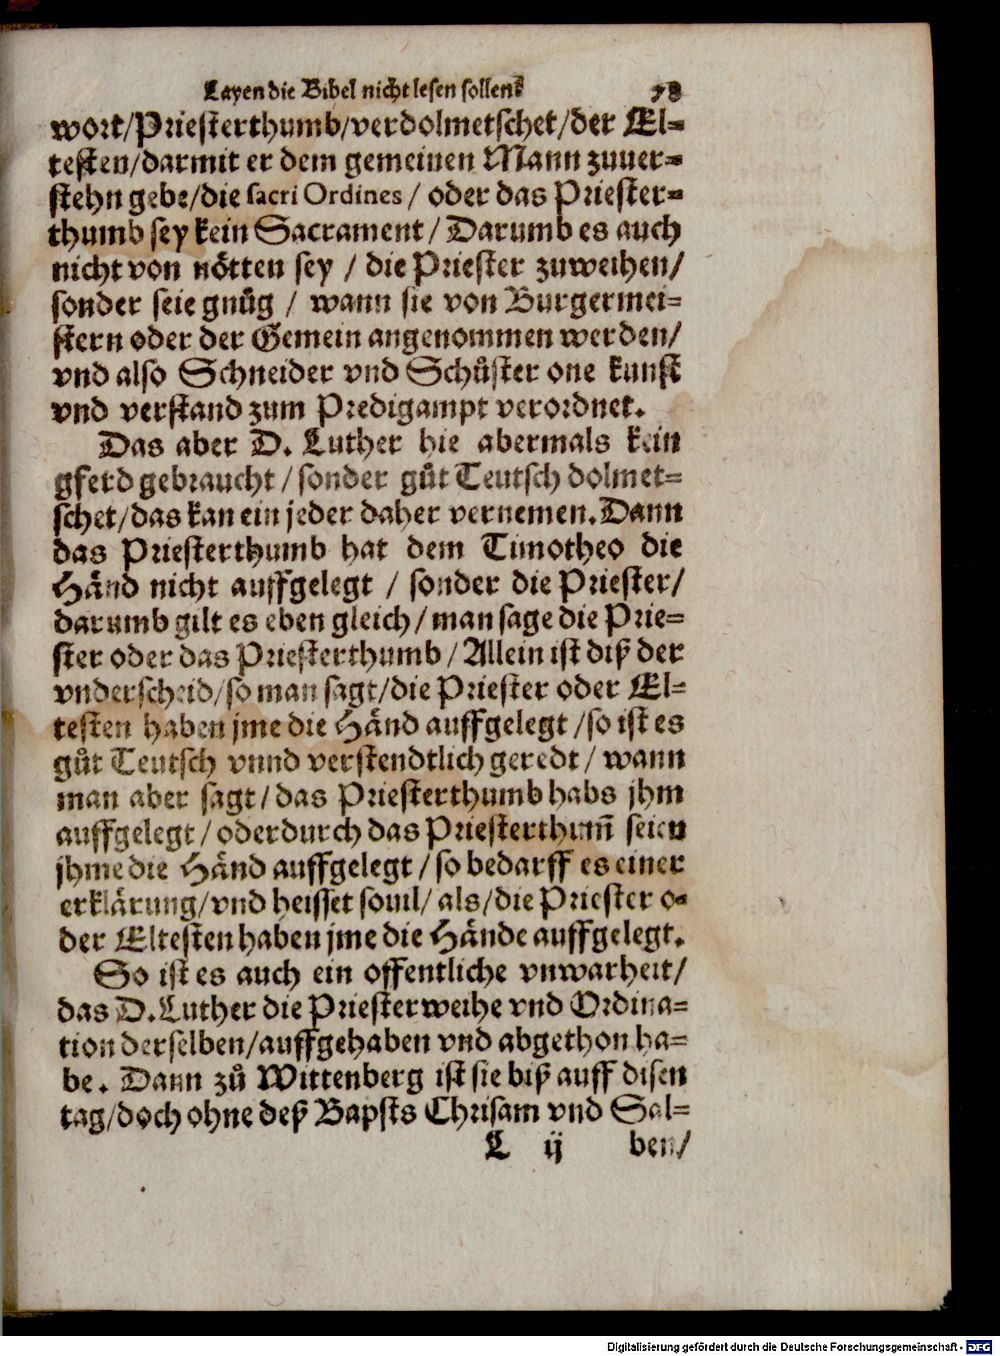 Layen die Bibel nicht lesen sollen? 78
wort/Priesterthumb/verdolmetschet/der El-
testen/darmit er dem gemeinen Mann zuuer-
stehn gebe/die sacri Ordines/ oder das Priester-
thumb sey kein Sacrament/ Darumb es auch
nicht von nötten sey / die Priester zuweihen/
sonder seie gnůg / wann sie von Burgermei-
stern oder der Gemein angenommen werden/
vnd also Schneider vnd Schůster one kunst
vnd verstand zum Predigampt verordnet.
Das aber D. Luther hie abermals kein
gferd gebraucht / sonder gůt Teutsch dolmet-
schet/das kan ein jeder daher vernemen. Dann
das Priesterthumb hat dem Timotheo die
Händ nicht auffgelegt / sonder die Priester/
darumb gilt es eben gleich/ man sage die Prie-
ster oder das Priesterthumb/ Allein ist diß der
vnderscheid/so man sagt/die Priester oder El-
testen haben jme die Händ auffgelegt/so ist es
gůt Teutsch vnnd verstendtlich geredt/ wann
man aber sagt/das Priesterthumb habs jhm
auffgelegt/oder durch das Priesterthum̃ seien
jhme die Händ auffgelegt/so bedarff es einer
erklärung/vnd heisset souil/als/die Priester o-
der Eltesten haben jme die Hände auffgelegt.
So ist es auch ein offentliche vnwarheit/
das D. Luther die Priesterweihe vnd Ordina-
tion derselben/auffgehaben vnd abgethon ha-
be. Dann zů Wittenberg ist sie biß auff disen
tag/doch ohne deß Bapsts Chrisam vnd Sal-
L ij ben/
Digitalisierung gefördert durch die Deutsche Forschungsgemeinschaft - DFG